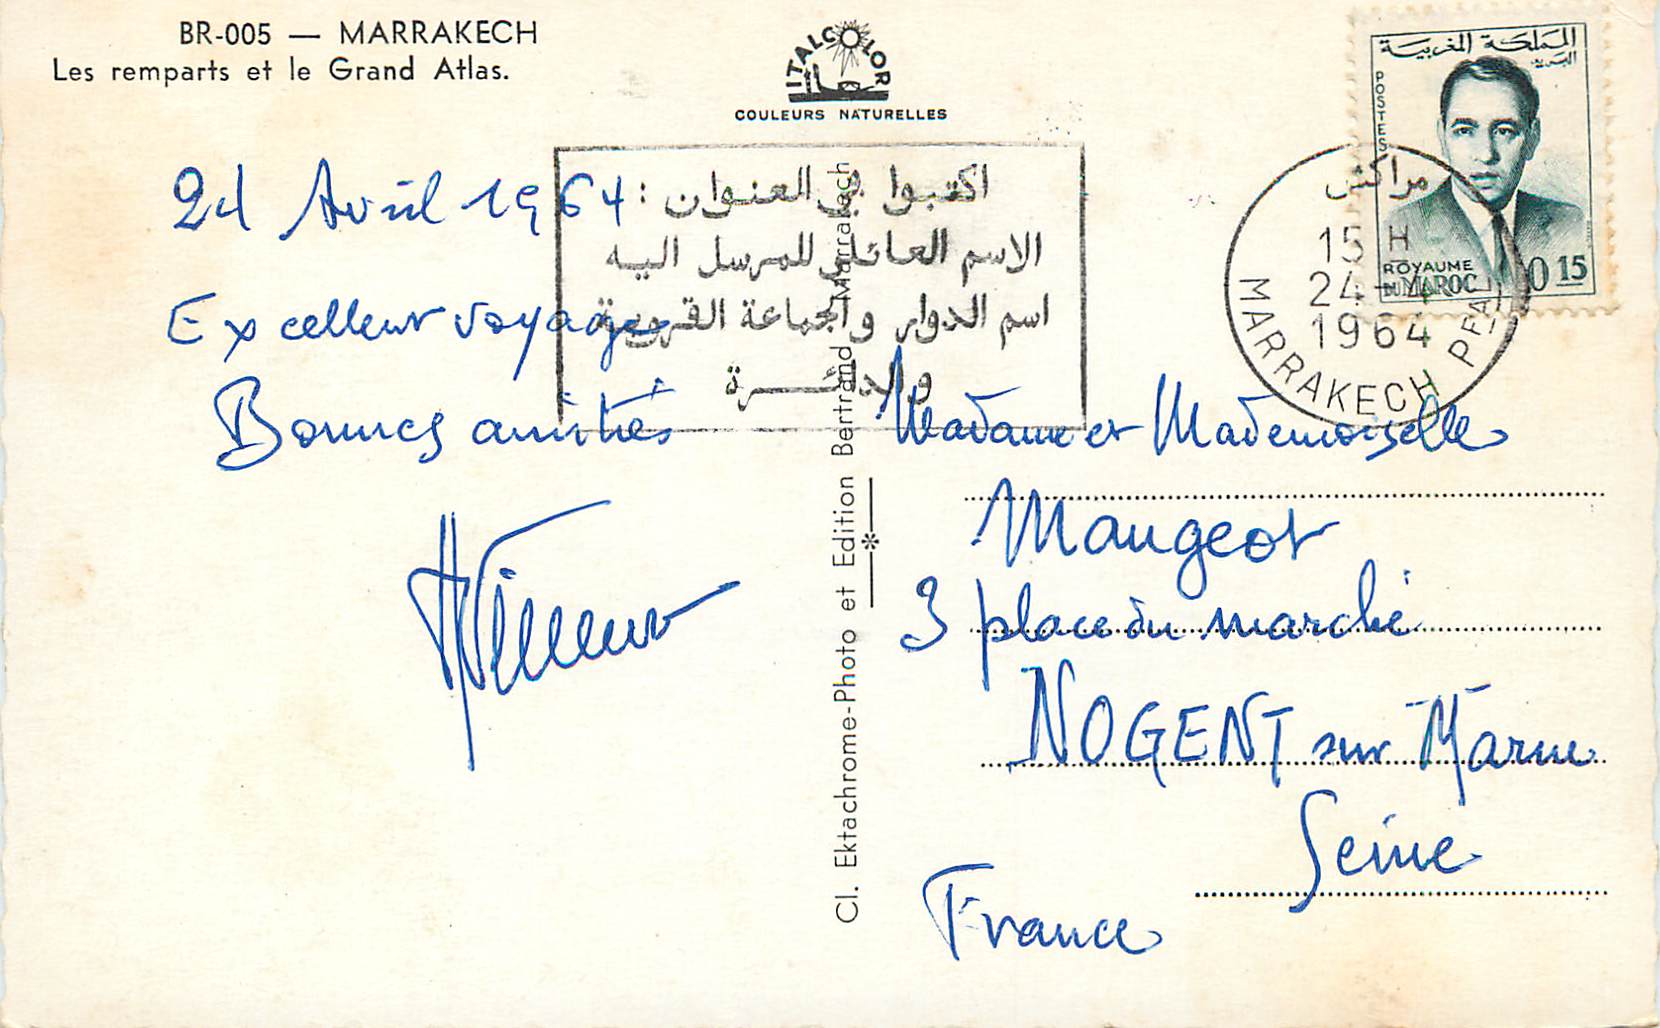 BR-005 — MARRAKECH
Les remparts et le Grand Atlas.
ITALCOLOR
COULEURS NATURELLES
المملكة المغربية
البريد
POSTES
ROYAUME
DU MAROC
0 15
مراكش
15 H
24-4
1964
MARRAKECH PFAL
اكتبوا في العنوان :
الاسم العائلي للمرسل اليه
اسم الدوار والجماعة القروية
والدائرة
24 Avril 1964
Excellent voyage
Bonnes amitiés
Cl. Ektachrome-Photo et Edition Bertrand Marrakech
Madame et Mademoiselle
Maugeot
3 place du marché
NOGENT sur Marne
Seine
France